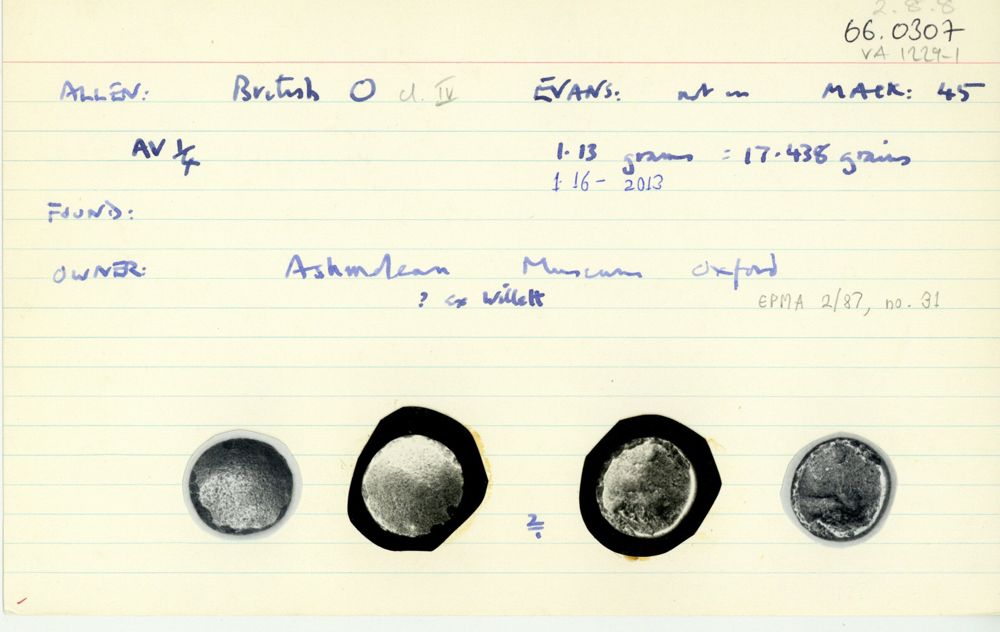 2.8.8
66.0307
VA 1229-1
ALLEN: British O cl. IV EVANS: not in MACK: 45
AV 1/4 1.13 grams = 17.438 grains
1.16- 2013
FOUND:
OWNER: Ashmolean Museum Oxford
? ex Willett EPMA 2/87, no. 31
2/1